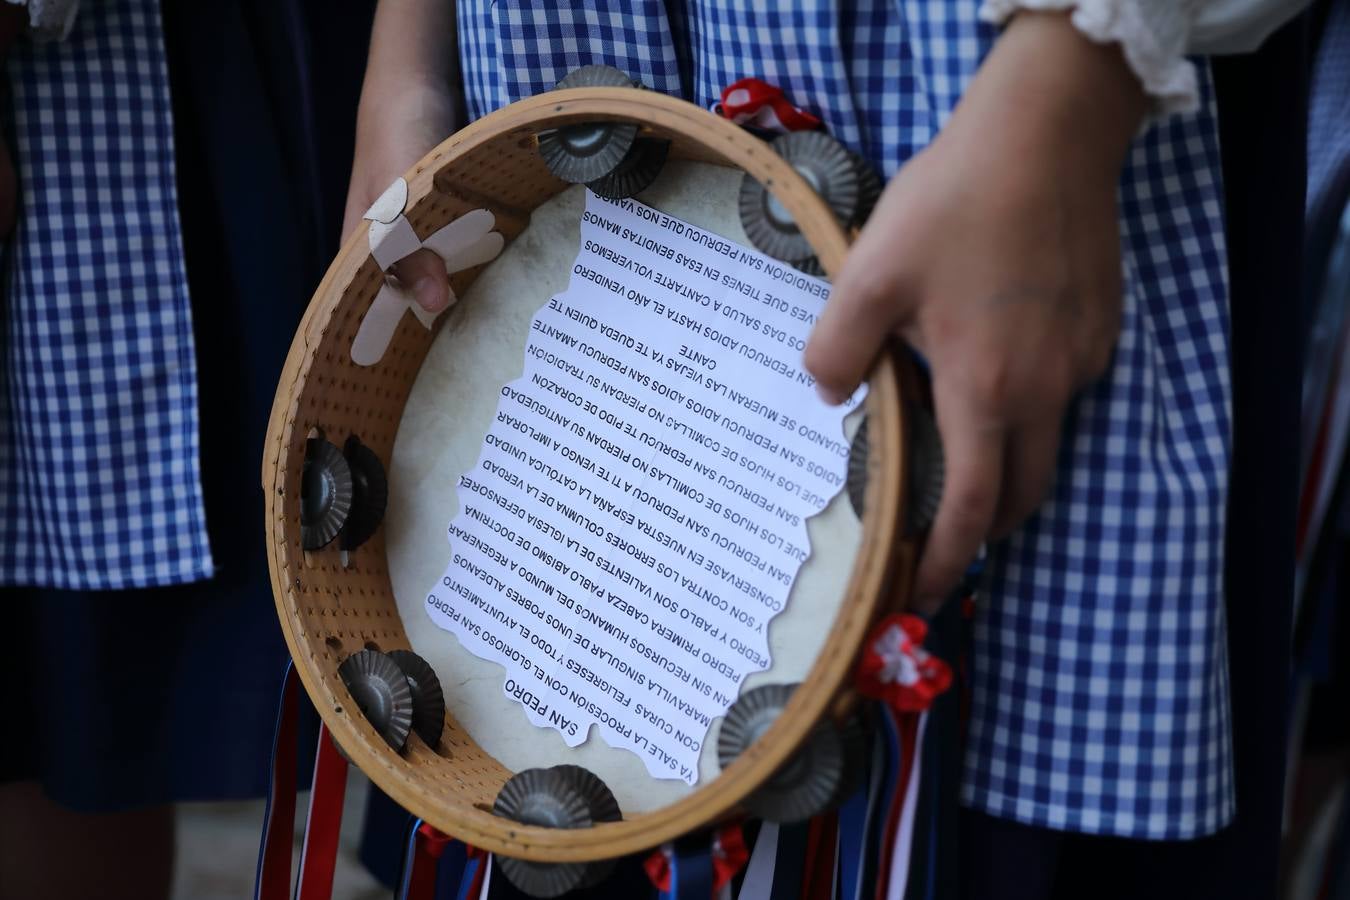 SAN PEDRO
YA SALE LA PROCESIÓN CON EL GLORIOSO SAN PEDRO
CON CURAS FELIGRESES Y TODO EL AYUNTAMIENTO
MARAVILLA SINGULAR DE UNOS POBRES ALDEANOS
AN SIN RECURSOS HUMANOS DEL MUNDO A REGENERAR
PEDRO PRIMERA CABEZA PABLO ABISMO DE DOCTRINA
PEDRO Y PABLO SON VALIENTES DE LA IGLESIA DEFENSORE
Y SON CONTRA LOS ERRORES COLUMNA DE LA VERDAD
CONSERVASE EN NUESTRA ESPAÑA LA CATÓLICA UNIDAD
SAN PEDRUCU SAN PEDRUCU A TI TE VENGO A IMPLORAR
QUE LOS HIJOS DE COMILLAS NO PIERDAN SU ANTIGÜEDAD
SAN PEDRUCU SAN PEDRUCU TE PIDO DE CORAZÓN
QUE LOS HIJOS DE COMILLAS NO PIERDAN SU TRADICIÓN
ADIOS SAN PEDRUCU ADIOS ADIOS SAN PEDRUCU AMANTE
CUANDO SE MUERAN LAS VIEJAS YA TE QUEDA QUIEN TE
CANTE
AN PEDRUCU ADIOS HASTA EL AÑO VENIDERO
OS DAS SALUD A CANTARTE VOLVEREMOS
VES QUE TIENES EN ESAS BENDITAS MANOS
BENDICIÓN SAN PEDRUCU QUE NOS VAMOS